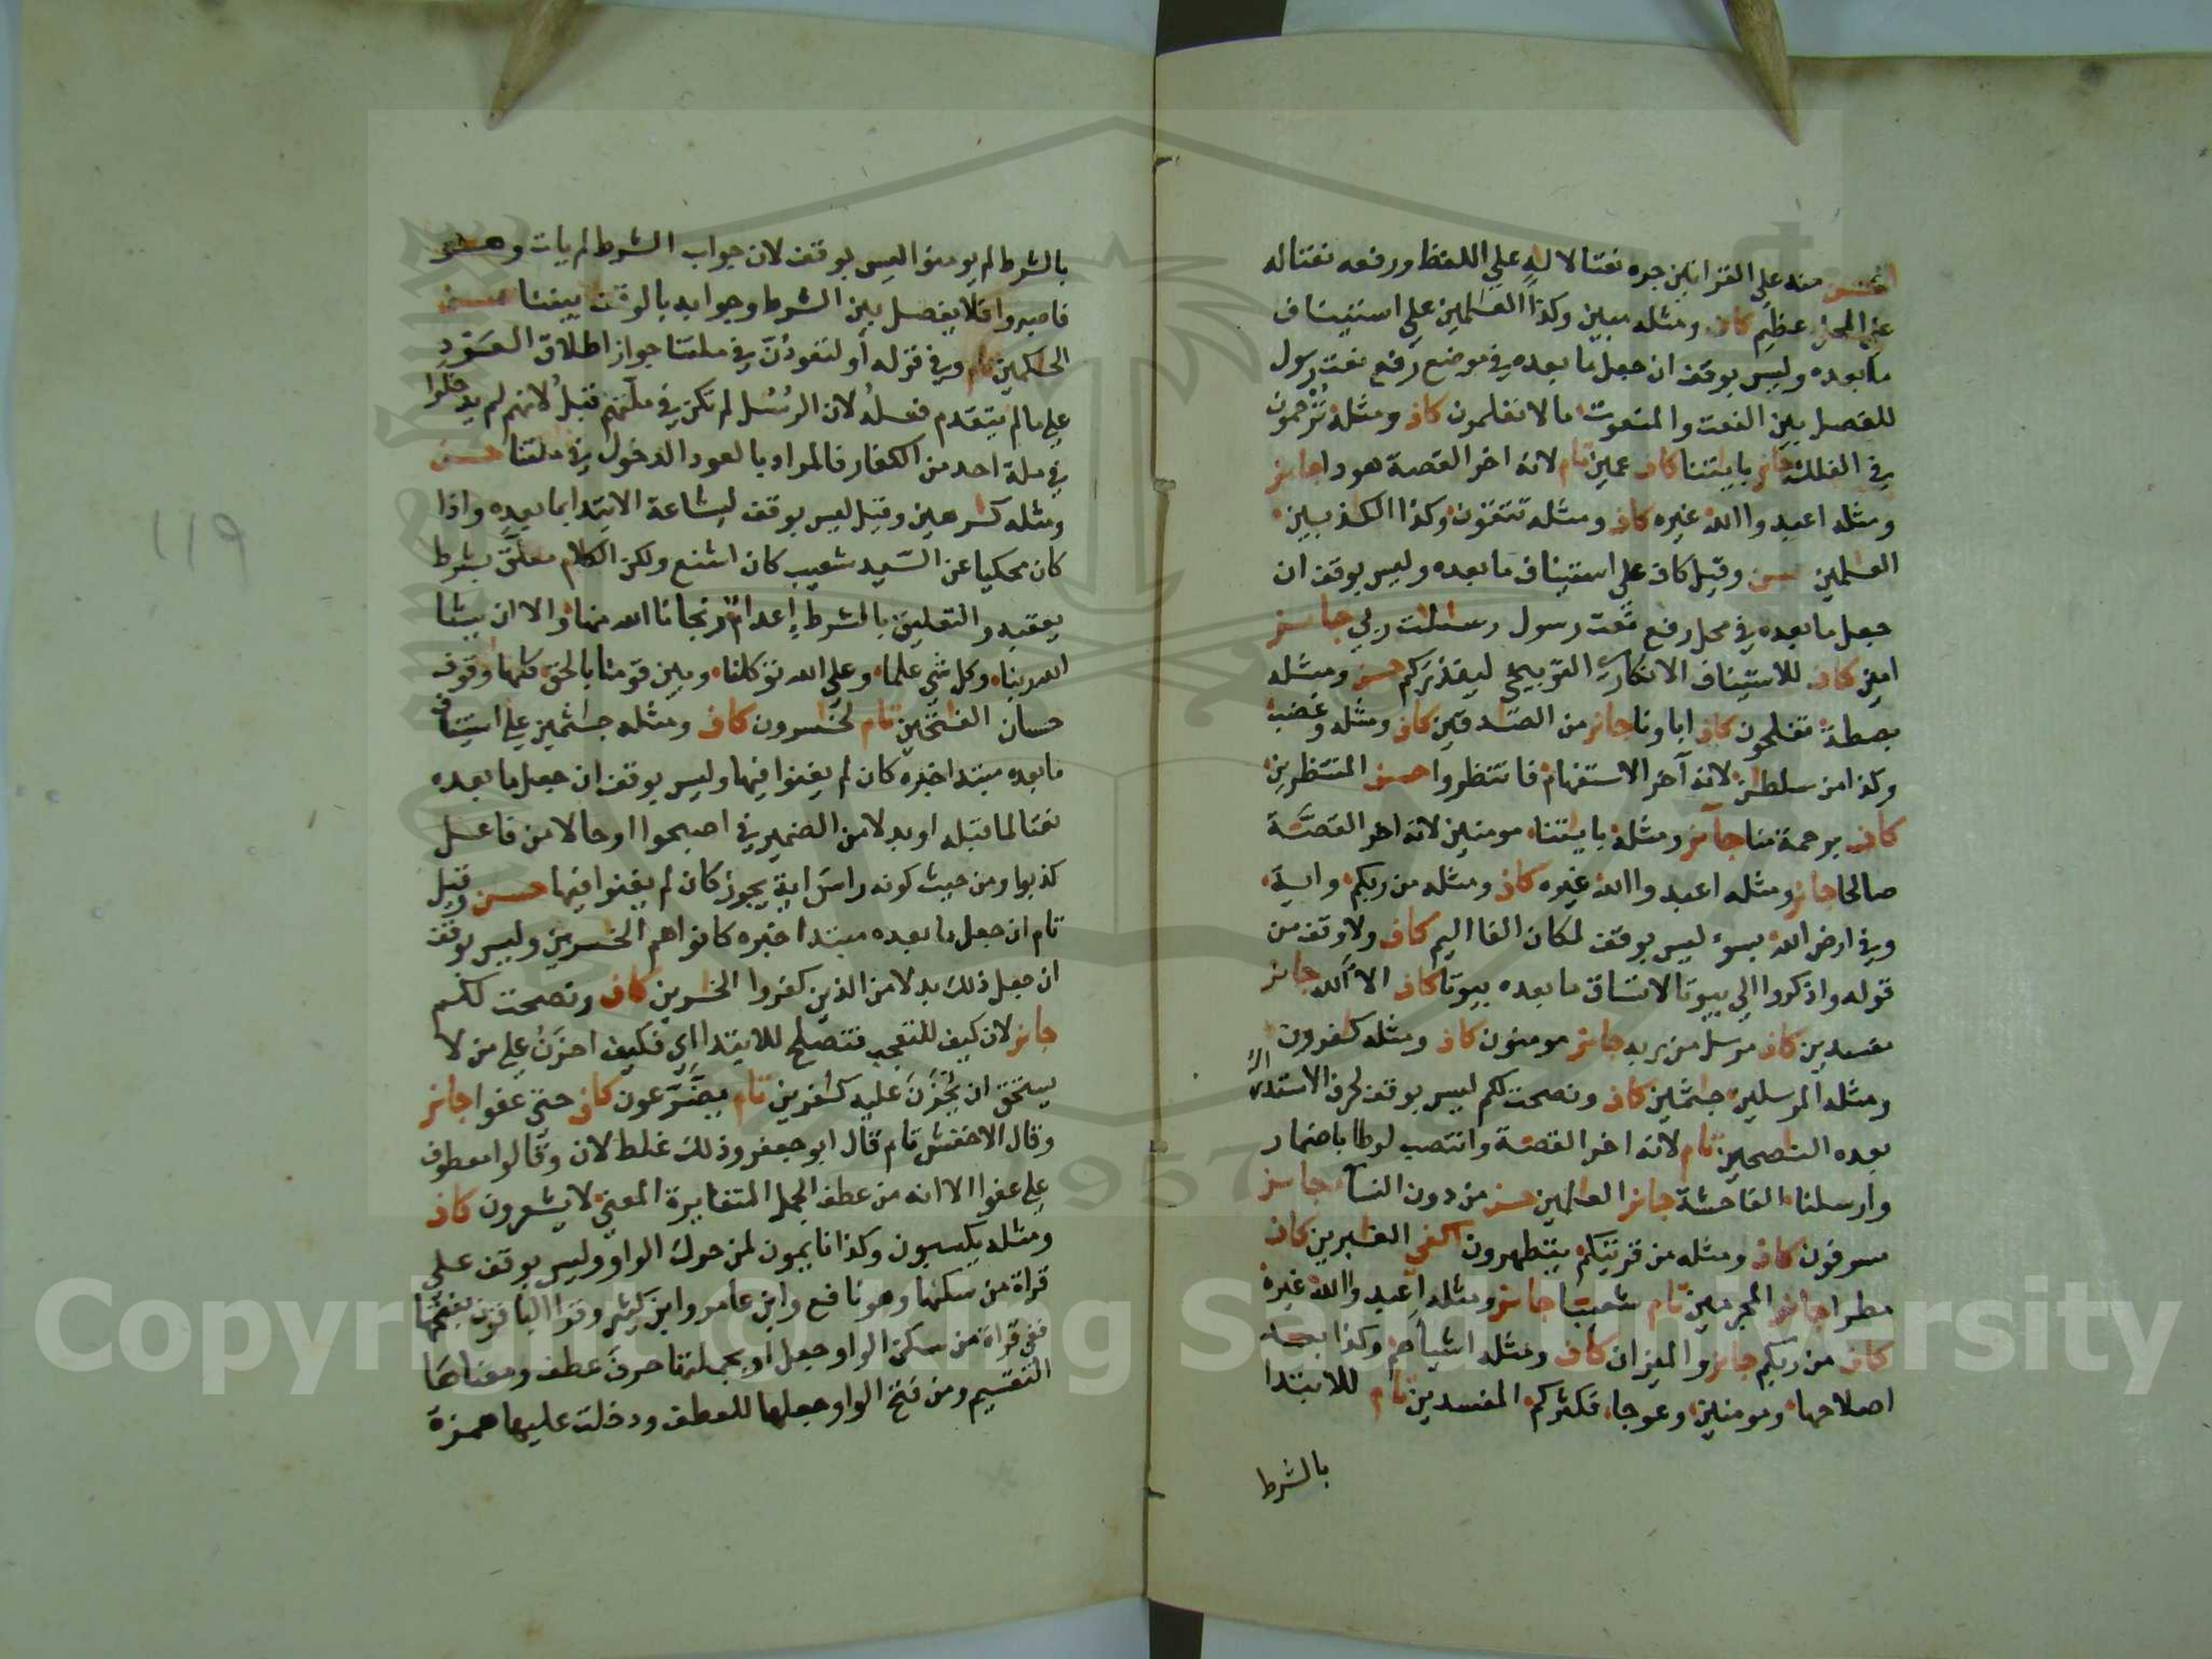 احسن منه على القراتين جره نعتا لاله على اللفظ ورفعه نعتا له
على المحل عظيم كاف ومثله مبين وكذا العلمين على استيناف
ما بعده وليس بوقف ان جعل ما بعده في موضع رفع نعت رسول
للفصل بين النعت والمنعوت ما لا تعلمون كاف ومثله ترحمون
في الفلك جائز باياتنا كاف عمين تام لانه اخر القصة هودا جائز
ومثله اعبدوا الله غيره كاف ومثله تتقون وكذا الكذبين
العلمين حسن وقيل كاف على استيناف ما بعده وليس بوقف ان
جعل ما بعده في محل رفع نعت رسول رسالات ربي جائز
امين كاف للاستيناف الانكاري التوبيخي لينذركم حسن ومثله
بصطة تفلحون كاف اباونا جائز من الصدقين كاف ومثله وغضب
وكذا من سلطن لانه آخر الاستفهام فانتظروا حسن المنتظرين
كاف برحمة منا جائز ومثله باياتنا مومنين لانه اخر القصة
صالحا جائز ومثله اعبدوا الله غيره كاف ومثله من ربكم واية
وفي ارض الله بسوء ليس بوقف لمكان الفا اليم كاف ولا وقف من
قوله واذكروا الى بيوتا لاتساق ما بعده بيوتا كاف الا الله جائز
مفسدين كاف مرسل من ربه جائز مومنون كاف ومثله كفرون
ومثله المرسلين جثمين كاف ونصحت لكم ليس بوقف لحرف الاستدراك
بعده النصحين تام لانه اخر القصة وانتصب لوطا باضمار
وارسلنا الفاحشة جائز العلمين حسن من دون النسآ جائز
مسرفون كاف ومثله من قريتكم يتطهرون اكفى الغبرين كاف
مطرا جائز المجرمين تام شعيبا جائز ومثله اعبدوا الله غيره
كاف من ربكم جائز والميزان كاف ومثله اشياءهم وكذا بعد
اصلاحها ومومنين وعوجا فكثركم المفسدين تام للابتدا
بالشرط
بالشرط لم يومنوا ليس بوقف لان جواب الشرط لم يات وهو
فاصبروا فلا يفصل بين الشرط وجوابه بالوقف بيننا حسن
الحكمين تام وفي قوله أو لتعودن في ملتنا جواز اطلاق العود
على ما لم يتقدم فعله لان الرسل لم تكن في ملتهم قبل لانهم لم يدخلوا
في ملة احد من الكفار فالمراد بالعود الدخول في ملتنا حسن
ومثله كرهين وقيل ليس بوقف لبشاعة الابتدا بما بعده واذا
كان محكيا عن السيد شعيب كان اشنع ولكن الكلام معلق بشرط
يعقبه والتعليق بالشرط إعدام نجانا الله منها والا ان يشا
الله ربنا وكل شي علما وعلى الله توكلنا وبين قومنا بالحق كلها وقوف
حسان الفتحين تام لخسرون كاف ومثله جثمين على استيناف
ما بعده مبتدا خبره كان لم يغنوا فيها وليس بوقف ان جعل ما بعده
نعتا لما قبله او بدلا من الضمير في اصبحوا او حالا من فاعل
كذبوا ومن حيث كونه راس اية يجوز كان لم يغنوا فيها حسن وقيل
تام ان جعل ما بعده مبتدا خبره كانوا هم الخسرين وليس بوقف
ان جعل ذلك بدلا من الذين كفروا الخسرين كاف ونصحت لكم
جائز لان كيف للتعجب فتصلح للابتدا اي فكيف احزن على من لا
يستحق ان يحزن عليه كفرين تام يضرعون كاف حتى عفوا جائز
وقال الاخفش تام قال ابو جعفر وذلك غلط لان وقالوا معطوف
على عفوا الا انه من عطف الجمل المتغايرة المعنى لا يشعرون كاف
ومثله يكسبون وكذا نايمون لمن حرك الواو وليس بوقف على
قراة من سكنها وهو نافع وابن عامر وابن كثير وقرا الباقون بفتحها
ففي قراة من سكن الواو جعل أو بجملتها حرف عطف ومعناها
التقسيم ومن فتح الواو جعلها للعطف ودخلت عليها همزة
119
Copyright © King Saud University
1957